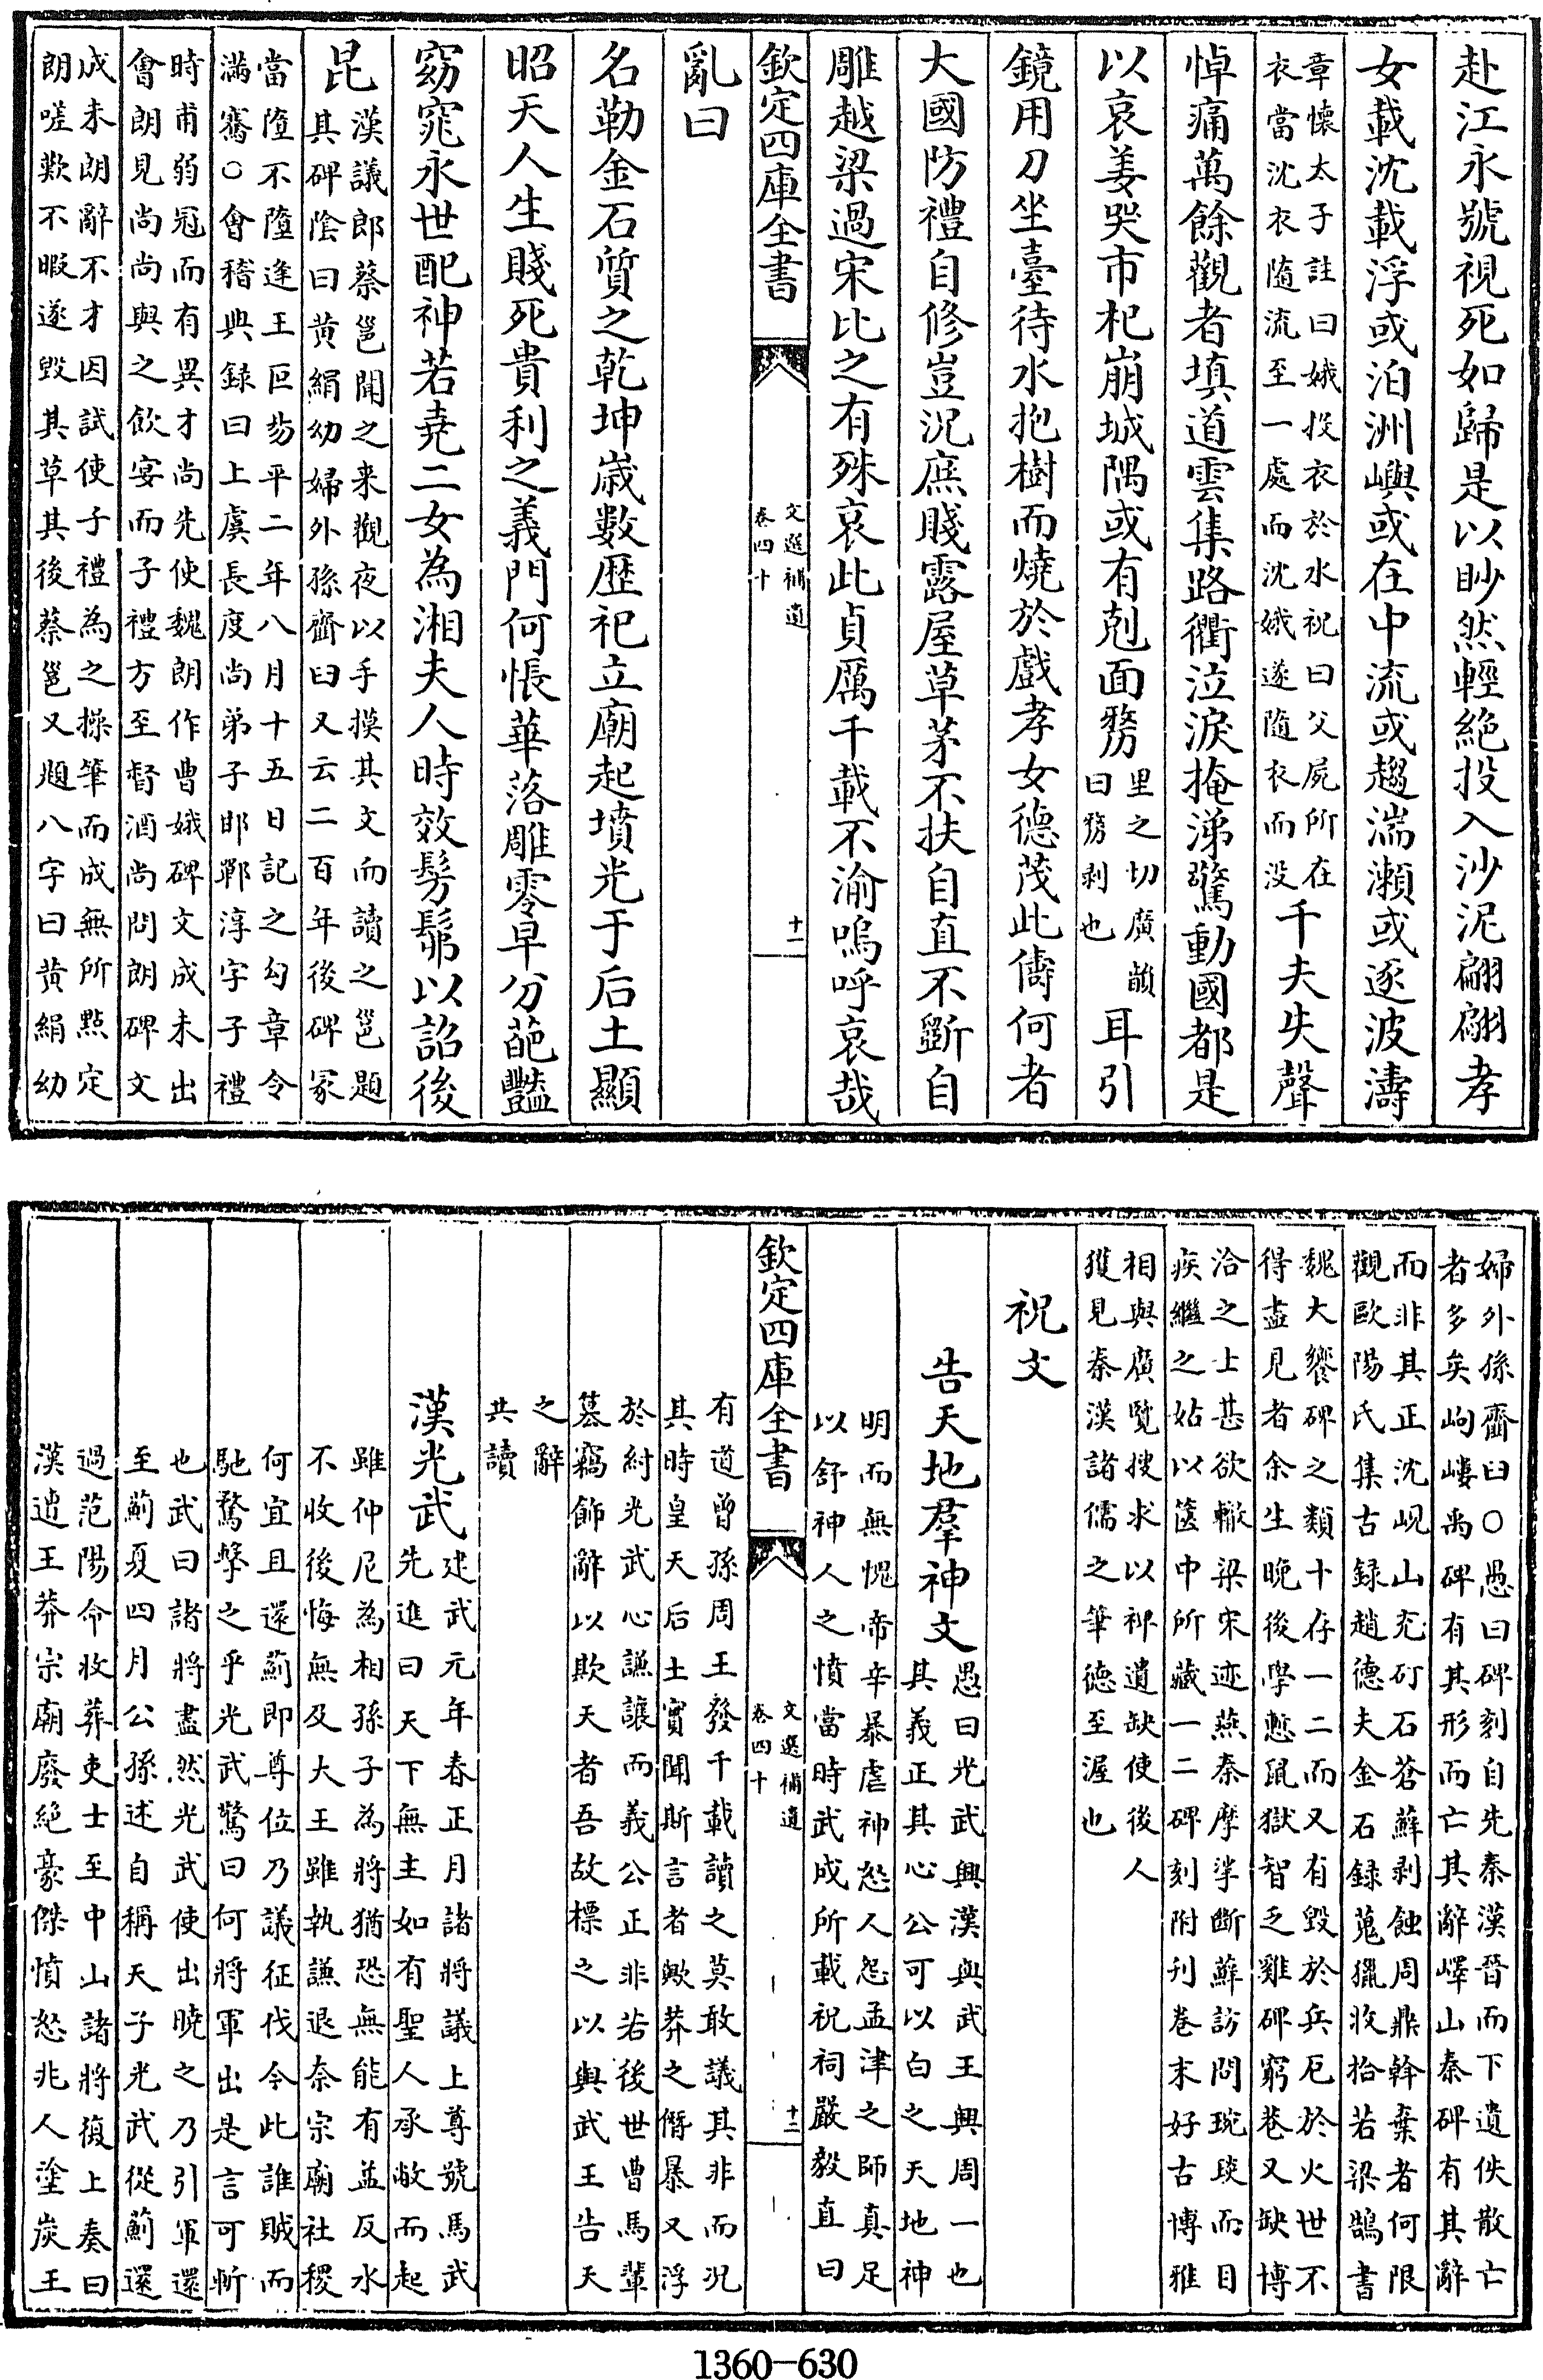 赴江永號視死如歸是以眇然輕絕投入沙泥翩翩孝
女載沈載浮或泊洲嶼或在中流或趨湍瀬或逐波濤
章懷太子註曰娥投衣於水祝曰父屍所在
衣當沈衣隨流至一處而沈娥遂隨衣而没
千夫失聲
悼痛萬餘觀者填道雲集路衢泣淚掩涕驚動國都是
以哀姜哭市杞崩城隅或有剋面㓨
里之切廣韻
曰㓨剥也
耳引
鏡用刀坐臺待水抱樹而燒於戲孝女德茂此儔何者
大國防禮自修豈況庶賤露屋草茅不扶自直不斵自
雕越梁過宋比之有殊哀此貞厲千載不渝嗚呼哀哉
欽定四庫全書
文選補遺
卷四十
十一
亂曰
名勒金石質之乾坤歳數歷祀立廟起墳光于后土顯
昭天人生賤死貴利之義門何悵華落雕零早分葩豔
窈窕永世配神若堯二女為湘夫人時效髣髴以詔後
昆
漢議郎蔡邕聞之来觀夜以手摸其文而讀之邕題
其碑陰曰黄絹幼婦外孫齏臼又云二百年後碑冢
當墮不墮逢王叵劵平二年八月十五日記之勾章令
滿騫○會稽典録曰上虞長度尚弟子邯鄲淳字子禮
時甫弱冠而有異才尚先使魏朗作曹娥碑文成未出
會朗見尚尚與之飲宴而子禮方至督酒尚問朗碑文
成未朗辭不才因試使子禮為之操筆而成無所點定
朗嗟歎不暇遂毁其草其後蔡邕又題八字曰黄絹幼
婦外孫齏臼○愚曰碑刻自先秦漢晉而下遺佚散亡
者多矣岣嶁禹碑有其形而亡其辭嶧山秦碑有其辭
而非其正沈峴山充矴石蒼蘚剥蝕周鼎幹棄者何限
觀歐陽氏集古録趙德夫金石録蒐獵收拾若梁鵠書
魏大饗碑之類十存一二而又有毁於兵厄於火世不
得盡見者余生晚後學慙鼠獄智乏雞碑窮巷又缺博
洽之士甚欲轍梁宋迹燕秦摩挲斷蘚訪問琬琰而目
疾繼之姑以篋中所藏一二碑刻附刊巻末好古博雅
相與廣覽搜求以裨遺缺使後人
獲見秦漢諸儒之筆徳至渥也
祝文
告天地羣神文
愚曰光武興漢與武王興周一也
其義正其心公可以白之天地神
明而無愧帝辛暴虐神怒人怨孟津之師真足
以舒神人之憤當時武成所載祝祠嚴毅直曰
欽定四庫全書
文選補遺
卷四十
十二
有道曾孫周王發千載讀之莫敢議其非而況
其時皇天后土實聞斯言者歟莽之僭暴又浮
於紂光武心謙讓而義公正非若後世曹馬輩
慕竊飾辭以欺天者吾故標之以與武王告天
之辭
共讀
漢光武
建武元年春正月諸將議上尊號馬武
先進曰天下無主如有聖人承敝而起
雖仲尼為相孫子為將猶恐無能有益反水
不收後悔無及大王雖執謙退奈宗廟社稷
何宜且還薊即尊位乃議征伐今此誰賊而
馳騖擊之乎光武驚曰何將軍出是言可斬
也武曰諸將盡然光武使出曉之乃引軍還
至薊夏四月公孫述自稱天子光武從薊還
過范陽命收葬吏士至中山諸將復上奏曰
漢遭王莽宗廟廢絶豪傑憤怒兆人塗炭王
1360—630